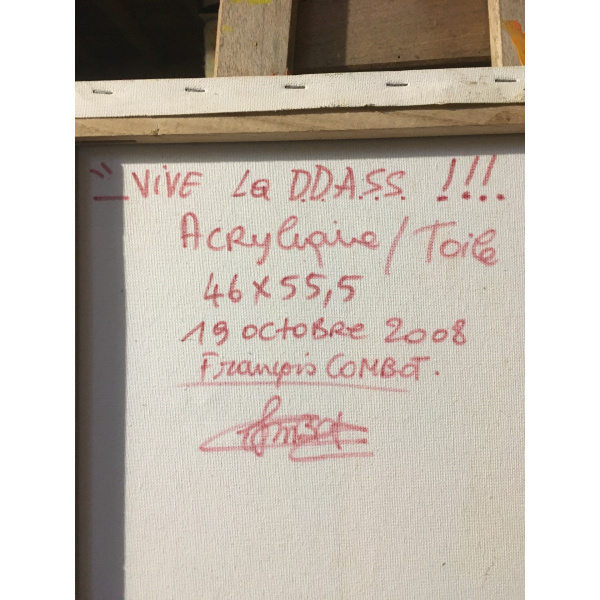 " _ VIVE La D.D.A.S.S. !!!
Acrylique / Toile
46 x 55,5
19 OCTOBRE 2008
François COMBOT.